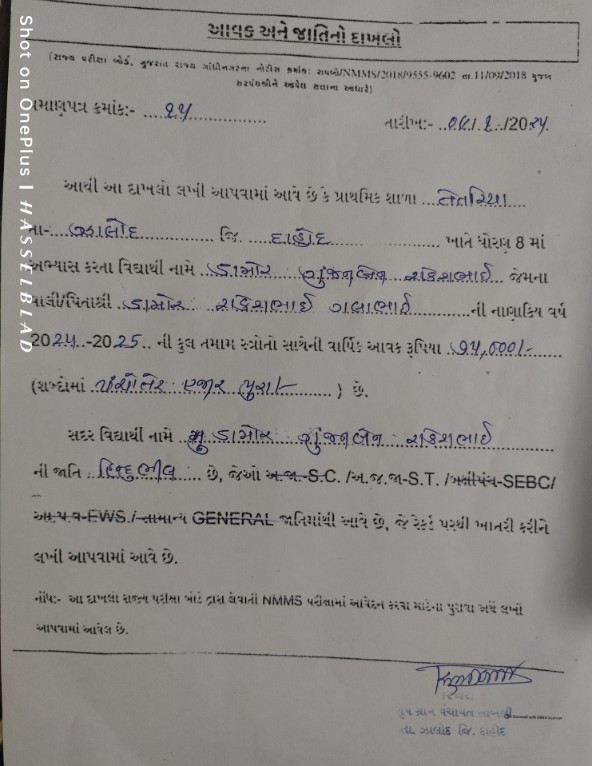 આવક અને જાતિનો દાખલો
(રાજ્ય પરીક્ષા બોર્ડ, ગુજરાત રાજ્ય ગાંધીનગરના નોટીસ ક્રમાંક: રાપબો/NMMS/2018/9555-9602 તા.11/09/2018 મુજબ
સરપંચશ્રીને આપેલ સત્તાના આધારે)
પ્રમાણપત્ર ક્રમાંક:- ૨૫
તારીખ:- /2024
આથી આ દાખલો લખી આપવામાં આવે છે કે પ્રાથમિક શાળા
તા- ઝાલોદ જિ. દાહોદ ખાતે ધોરણ 8 માં
અભ્યાસ કરતા વિદ્યાથી નામે ડામોર ગુંજનબેન રાકેશભાઈ જેમના
વાલી/પિતાશ્રી ડામોર રાકેશભાઈ ગલાભાઈ ની નાણાકિય વર્ષ
2024-2025 ની કુલ તમામ સ્ત્રોતો સાથેની વાર્ષિક આવક રૂપિયા ૭૫,૦૦૦/-
(શબ્દોમાં પંચોતેર હજાર પુરા) છે.
સદર વિદ્યાથી નામે ડામોર ગુંજનબેન રાકેશભાઈ
ની જાતિ હિન્દુ ભીલ છે, જેઓ અ.જા-S.C. /અ.જ.જા-S.T. /બક્ષીપંચ-SEBC/
આ.પ.વ-EWS./ સામાન્ય GENERAL જાતિમાંથી આવે છે, જે રેકર્ડ પરથી ખાતરી કરીને
લખી આપવામાં આવે છે.
નોંધ:- આ દાખલો રાજ્ય પરીક્ષા બોર્ડ દ્વારા લેવાતી NMMS પરીક્ષામાં આવેદન કરવા માટેના પુરાવા અર્થે લખી
આપવામાં આવેલ છે.
ગ્રામ પંચાયત
તા. ઝાલોદ જિ. દાહોદ
Shot on OnePlus | HASSELBLAD